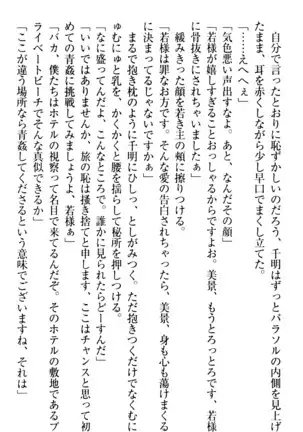 自分で言ったとおりに恥ずかしいのだろう、千明はずっとパラソルの内側を見上げ
たまま、耳を赤くしながら少し早口でまくし立てた。
「……えへへぇ」
「気色悪い声出すなよ。あと、なんだその顔」
「若様が嬉しすぎることおっしゃるからですよぅ。美景、もうとろっとろです、若様
に骨抜きにされちゃいましたぁ」
緩みきった顔を若き主の頬に擦りつける。
「若様は罪なお方です。そんな愛の告白されちゃったら、美景、身も心も蕩けまくる
に決まってるじゃないですかぁ」
まるで抱き枕のように千明にひしっ、としがみつく。ただ抱きつくだけでなくむに
ゅむにゅと乳を、かくかくと腰を揺らして秘所を押しつける。
「なに盛ってんだよ、こんなところで。誰かに見られたらどーすんだ」
「いいではありませんか、旅の恥は掻き捨てと申します、ここはチャンスと思って初
めての青姦に挑戦してみましょうよ、若様ぁ」
「バカ、僕たちはホテルの視察って名目で来てるんだぞ。そのホテルの敷地であるプ
ライベートビーチでそんな真似できるか」
「ここが違う場所なら青姦してくださるという意味でございますね、それは」